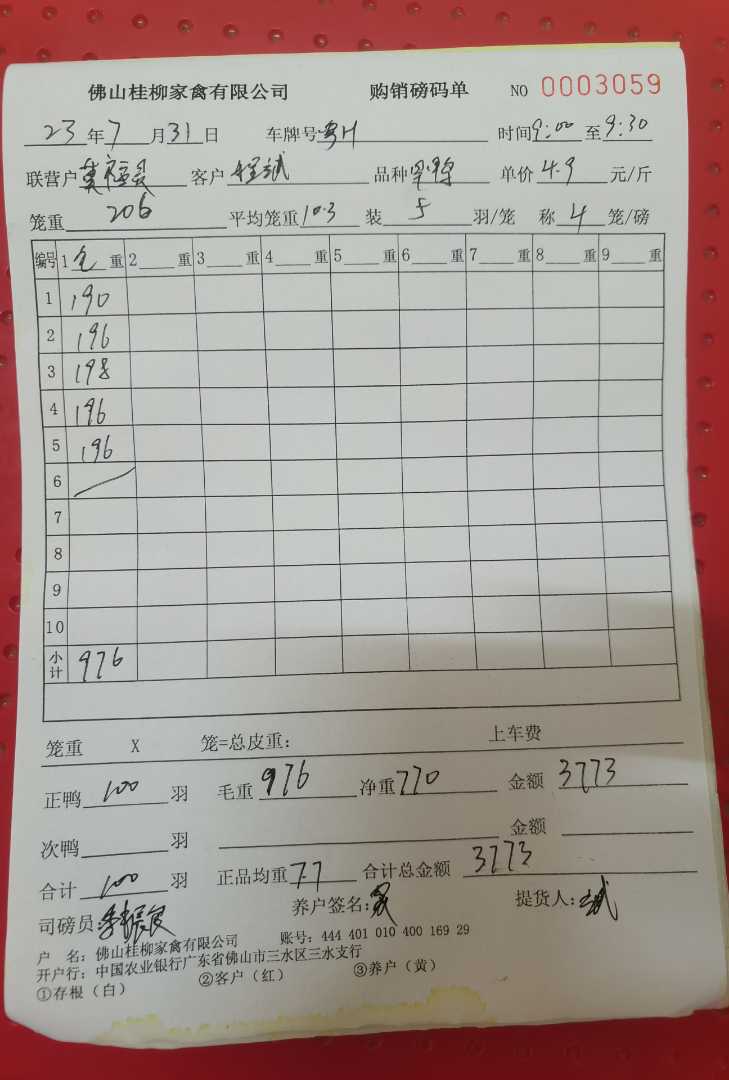 佛山桂柳家禽有限公司 购销磅码单 NO 0003059
23年7月31日 车牌号 时间9:00至9:30
联营户 客户 斌 品种 单价4.9元/斤
笼重206 平均笼重10.3 装5羽/笼 称4笼/磅
编号 1毛重 2重 3重 4重 5重 6重 7重 8重 9重
1 190
2 196
3 198
4 196
5 196
6
7
8
9
10
小计 976
笼重 X 笼=总皮重: 上车费
正鸭100羽 毛重976 净重770 金额3773
次鸭 羽 金额
合计100羽 正品均重7.7 合计总金额3773
司磅员: 养户签名: 提货人:斌
户 名: 佛山桂柳家禽有限公司 账号: 444 401 010 400 169 29
开户行: 中国农业银行广东省佛山市三水区三水支行
①存根（白） ②客户（红） ③养户（黄）